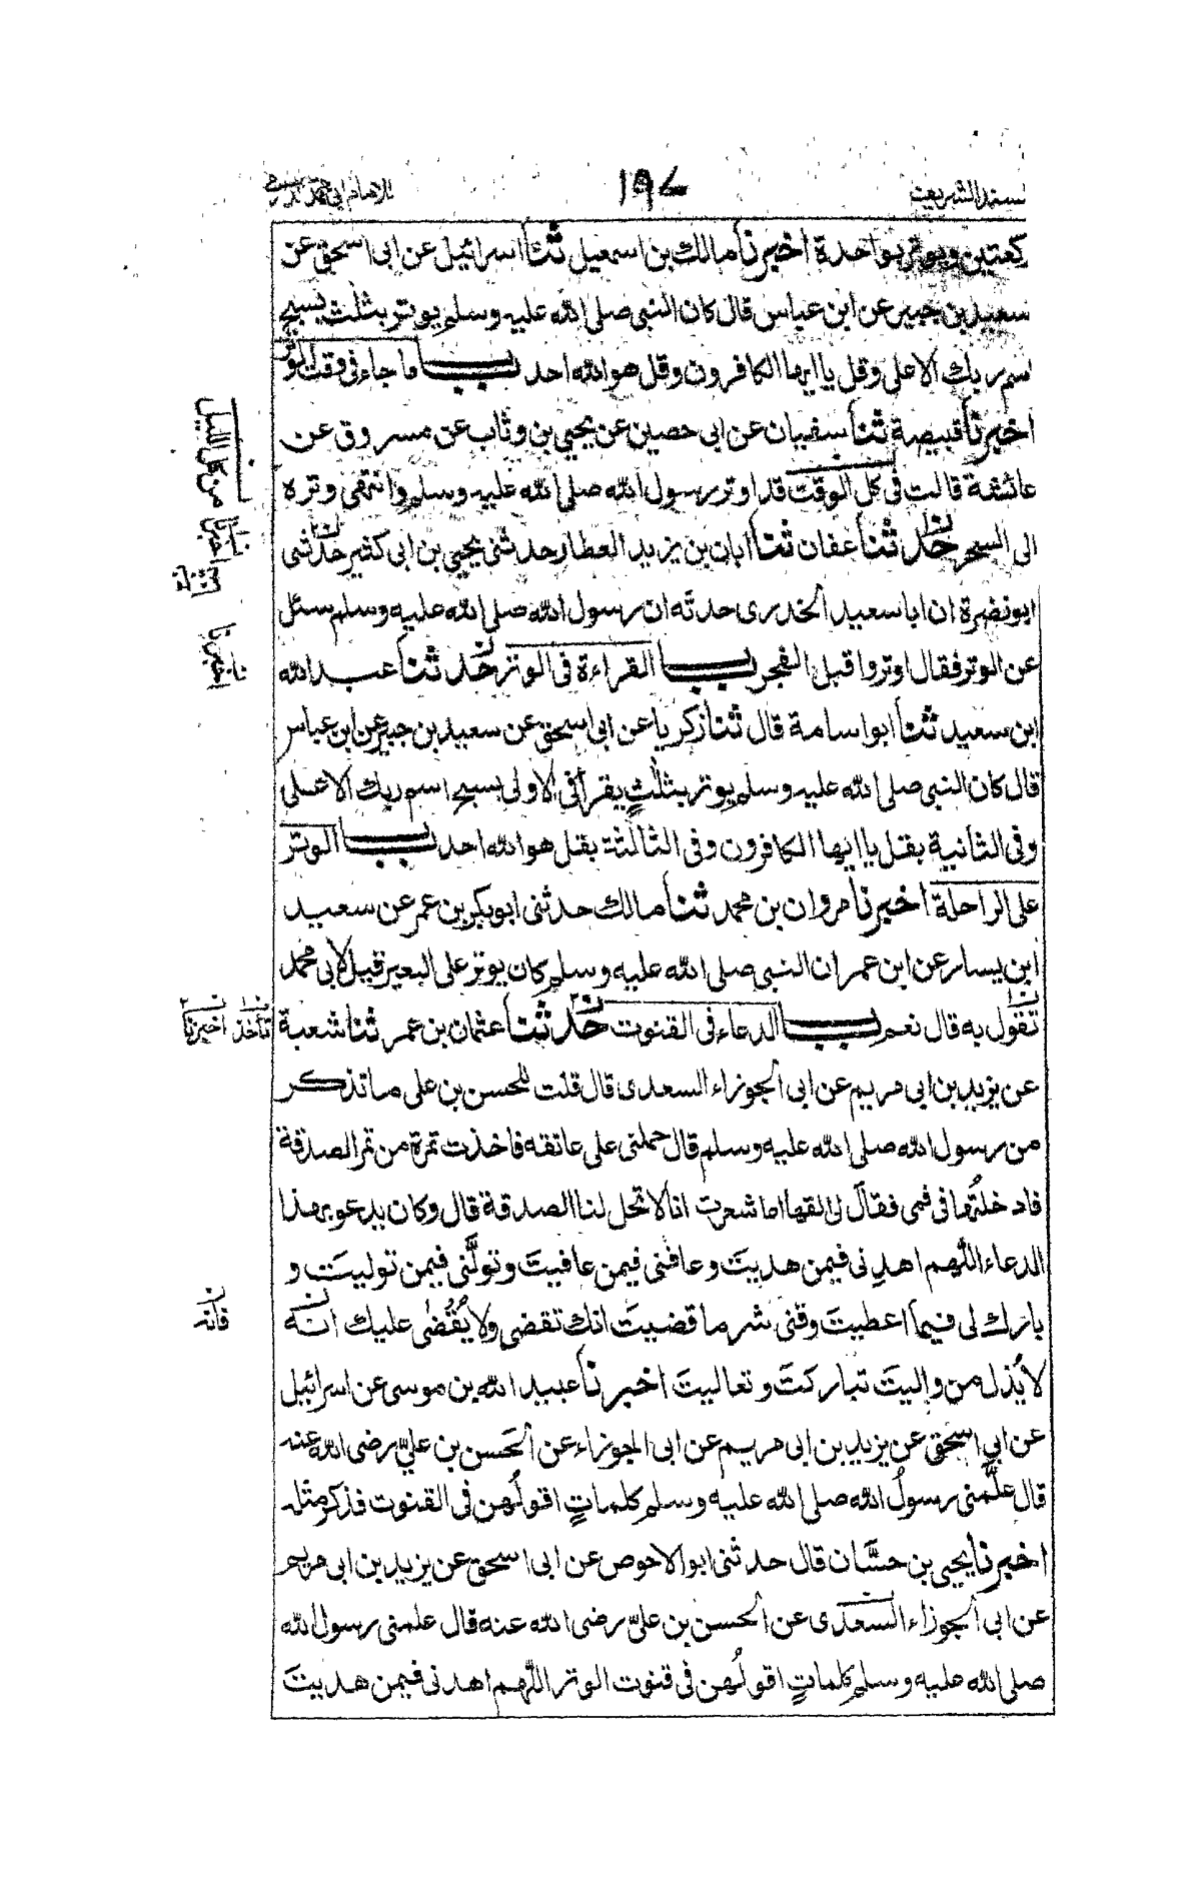 مسند الشريف ١٩٧ للامام ابي محمد الدارمي
كعتين ويوتر بواحدة اخبرنا مالك بن اسمعيل ثنا اسرائيل عن ابى اسحق عن
سعيد بن جبير عن ابن عباس قال كان النبى صلى الله عليه وسلم يوتر بثلث بسبح
اسم ربك الاعلى وقل يا ايها الكافرون وقل هو الله احد باب ما جاء فى وقت الوتر
اخبرنا قبيصة ثنا سفيان عن ابى حصين عن يحيى بن وثاب عن مسروق عن
عائشة قالت فى كل الوقت قد اوتر رسول الله صلى الله عليه وسلم وانتهى وتره
الى السحر حدثنا عفان ثنا ابان بن يزيد العطار حدثنى يحيى بن ابى كثير حدثنى
ابو نضرة ان ابا سعيد الخدرى حدثه ان رسول الله صلى الله عليه وسلم سئل
عن الوتر فقال اوتروا قبل الفجر باب القراءة فى الوتر حدثنا عبد الله
ابن سعيد ثنا ابو اسامة قال ثنا زكريا عن ابى اسحق عن سعيد بن جبير عن ابن عباس
قال كان النبى صلى الله عليه وسلم يوتر بثلثٍ يقرأ فى الاولى بسبح اسم ربك الاعلى
وفى الثانية بقل يا ايها الكافرون وفى الثالثة بقل هو الله احد باب الوتر
على الراحلة اخبرنا مروان بن محمد ثنا مالك حدثنى ابو بكر بن عمر عن سعيد
ابن يسار عن ابن عمر ان النبى صلى الله عليه وسلم كان يوتر على البعير قيل لابى محمد
تقول به قال نعم باب الدعاء فى القنوت حدثنا عثمان بن عمر ثنا شعبة
عن يزيد بن ابى مريم عن ابى الجوزاء السعدى قال قلت للحسن بن على ما تذكر
من رسول الله صلى الله عليه وسلم قال حملنى على عاتقه فاخذت تمرة من تمر الصدقة
فادخلتُها فى فمى فقال لى القها اما شعرت انا لا تحل لنا الصدقة قال وكان يدعو بهذا
الدعاء اللّٰهم اهدِنى فيمن هديتَ وعافنى فيمن عافيتَ وتولَّنى فيمن توليتَ و
بارك لى فيما اعطيتَ وقنى شر ما قضيتَ انك تقضى ولا يُقْضٰى عليك انه
لا يُذل من واليتَ تباركتَ وتعاليتَ اخبرنا عبيد الله بن موسى عن اسرائيل
عن ابى اسحق عن يزيد بن ابى مريم عن ابى الجوزاء عن الحَسن بن علىّ رضى الله عنه
قال علَّمنى رسولُ الله صلى الله عليه وسلم كلماتٍ اقولُهن فى القنوت فذكر مثله
اخبرنا يحيى بن حسَّان قال حدثنى ابو الاحوص عن ابى اسحق عن يزيد بن ابى مريم
عن ابى الجوزاء السعدى عن الحسن بن علىّ رضى الله عنه قال علمنى رسول الله
صلى الله عليه وسلم كلماتٍ اقولُهن فى قنوت الوتر اللّٰهم اهدنى فيمن هديتَ
من كل الليل
اخبرنا
اخبرنا
تأخذ اخبرنا
فانه